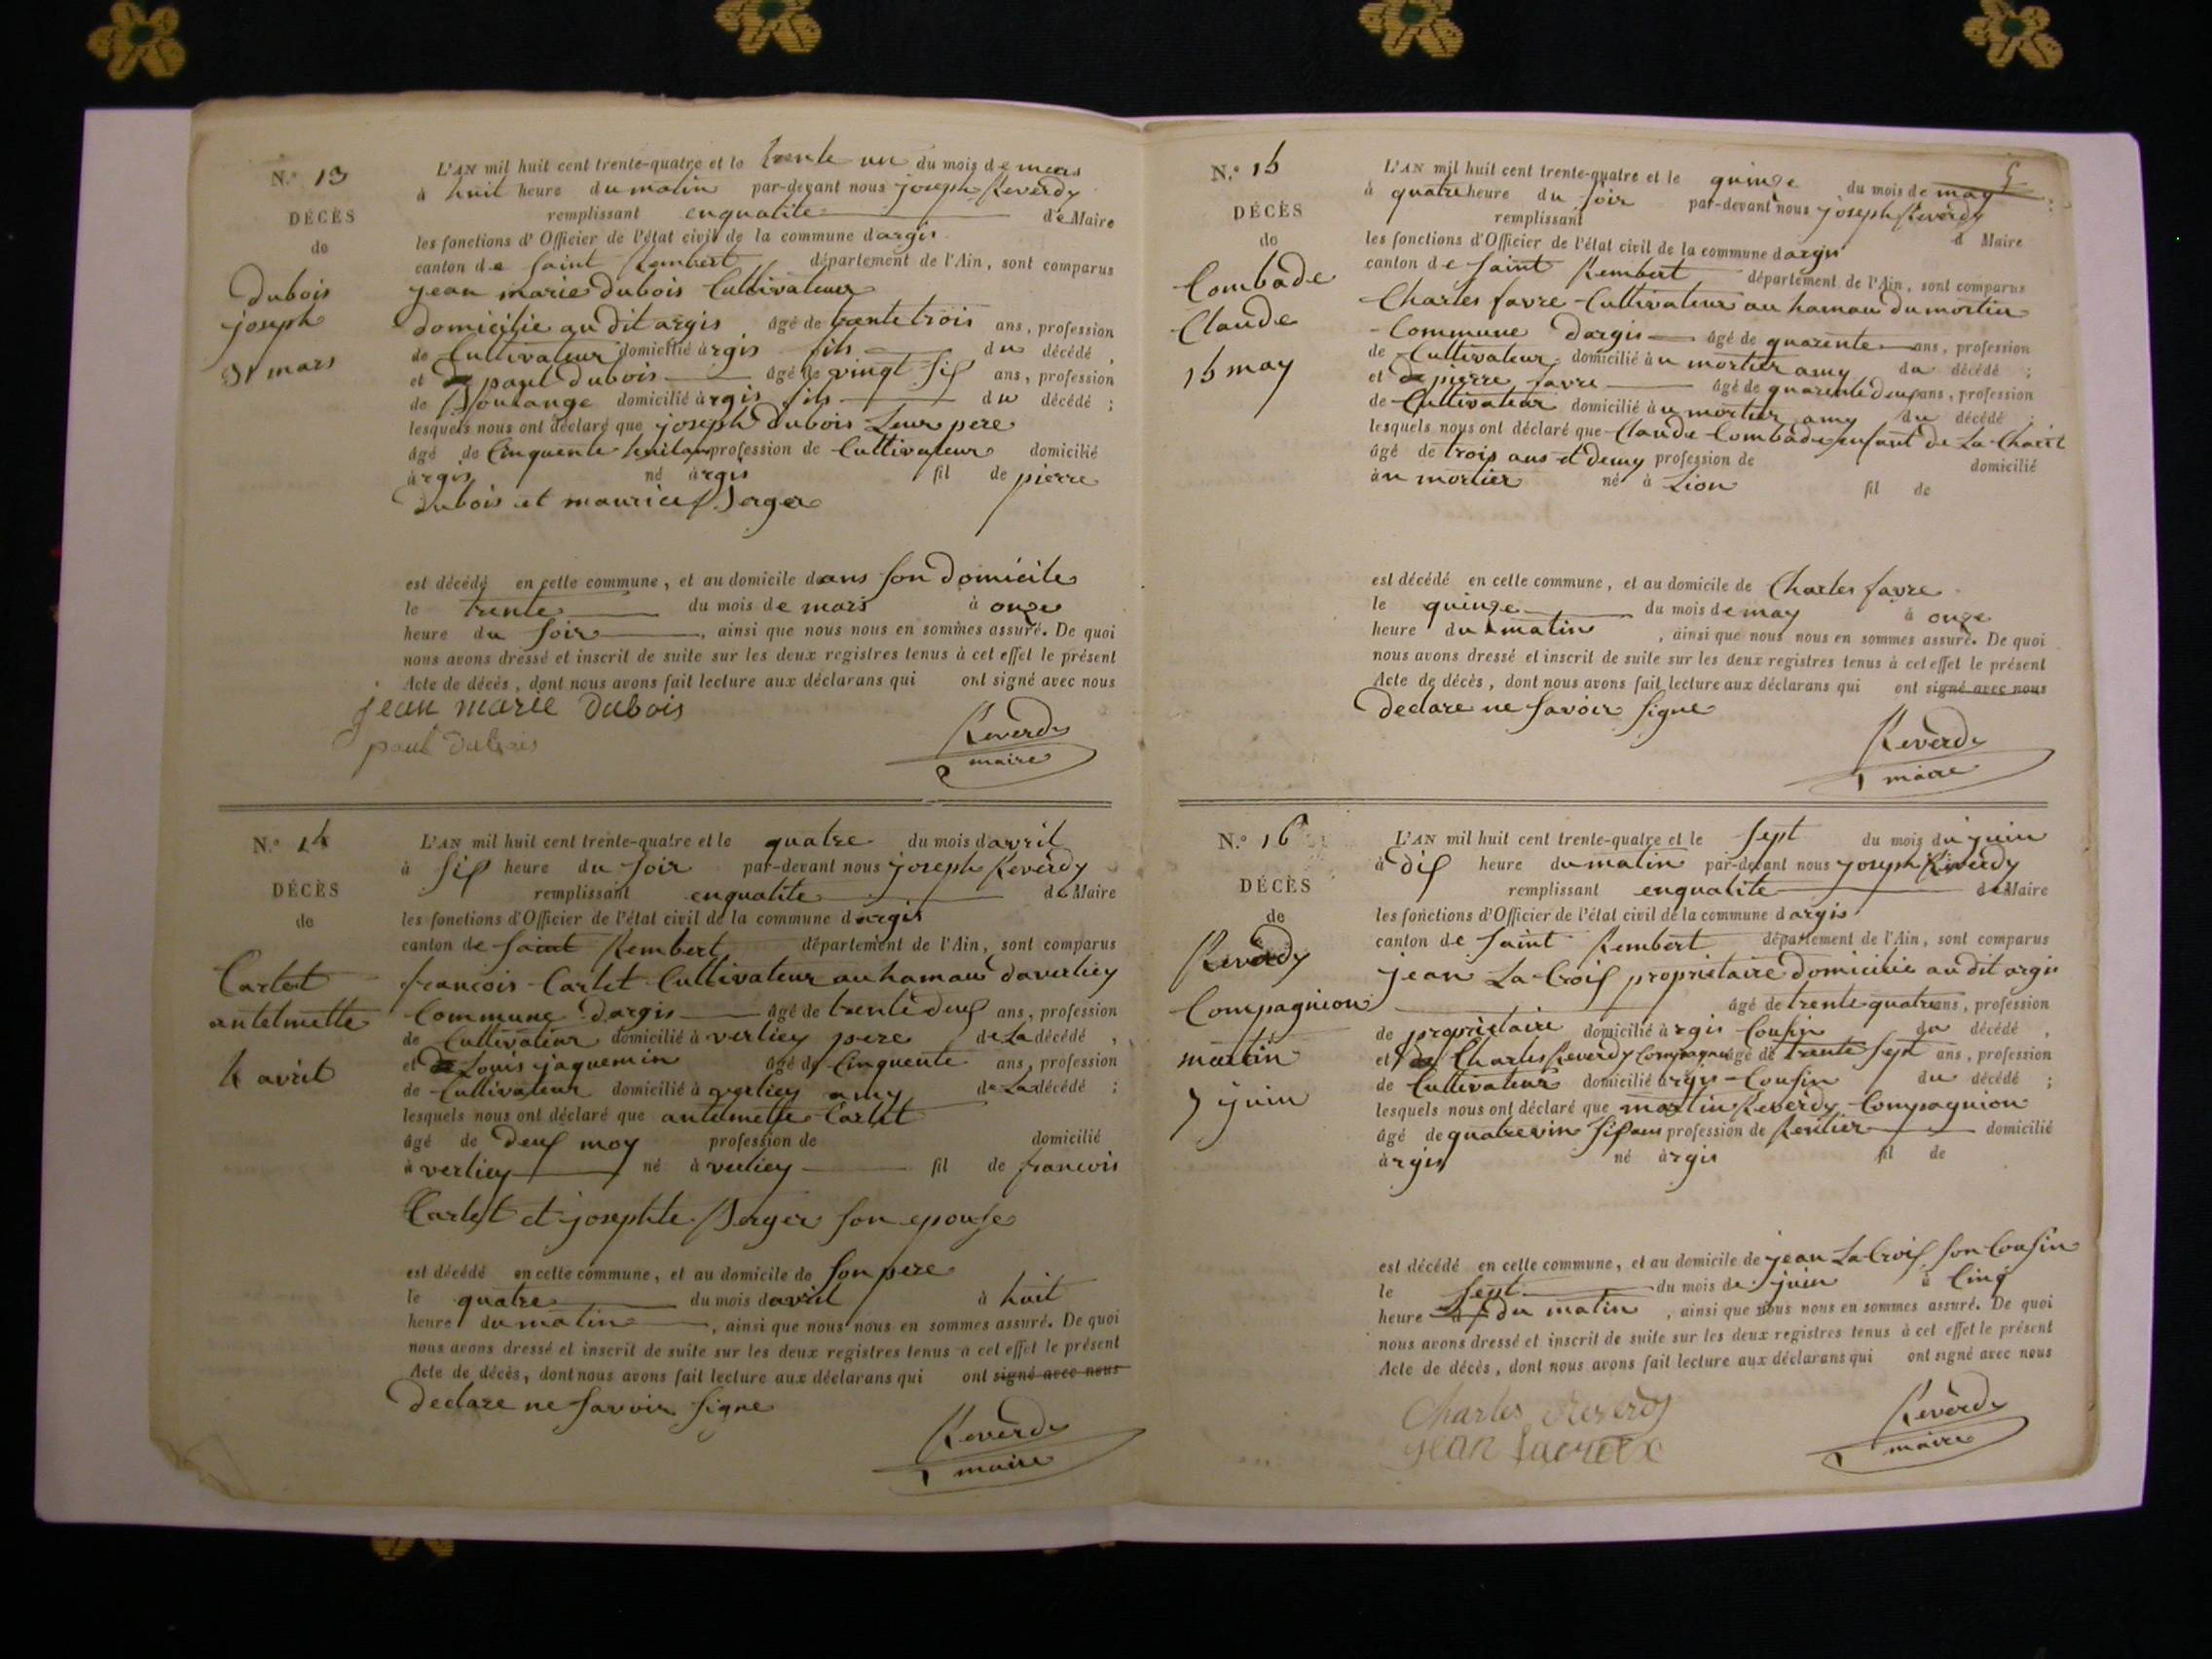 N.° 13
DÉCÈS
de
Dubois
joseph
31 mars
L'AN mil huit cent trente-quatre et le trente un du mois de mars
à huit heure du matin par-devant nous joseph Reverdy
remplissant enqualite de Maire
les fonctions d'Officier de l'état civil de la commune dargis
canton de Saint Rembert département de l'Ain, sont comparus
jean marie dubois Cultivateur
domicilie au dit argis âgé de trente trois ans, profession
de Cultivateur domicilié à rgis fils du décédé,
et de paul Dubois âgé de vingt six ans, profession
de Boulange domicilié à rgis fils du décédé;
lesquels nous ont déclaré que joseph dubois Leur pere
âgé de Cinquente huit an profession de Cultivateur domicilié
à rgis né à rgis fil de pierre
Dubois et maurice Berger
est décédé en cette commune, et au domicile dans son domicile
le trente du mois de mars à onze
heure du soir, ainsi que nous nous en sommes assuré. De quoi
nous avons dressé et inscrit de suite sur les deux registres tenus à cet effet le présent
Acte de décès, dont nous avons fait lecture aux déclarans qui ont signé avec nous
jean marie dubois
paul dubois
Reverdy
maire
N.° 14
DÉCÈS
de
Cartet
antelmette
4 avril
L'AN mil huit cent trente-quatre et le quatre du mois davril
à six heure du soir par-devant nous joseph Reverdy
remplissant enqualite de Maire
les fonctions d'Officier de l'état civil de la commune dargis
canton de Saint Rembert département de l'Ain, sont comparus
francois Cartet Cultivateur au hamau daverliey
Commune dargis âgé de trente deux ans, profession
de Cultivateur domicilié à verliey pere de La décédé,
et de Louis jaquemin âgé de Cinquente ans, profession
de Cultivateur domicilié à verliey amy de La décédé;
lesquels nous ont déclaré que antelmette Cartet
âgé de deux moy profession de domicilié
à verliey né à verliey fil de francois
Cartet et josephte Berger son epouse
est décédé en cette commune, et au domicile de son pere
le quatre du mois davril à huit
heure du matin, ainsi que nous nous en sommes assuré. De quoi
nous avons dressé et inscrit de suite sur les deux registres tenus à cet effet le présent
Acte de décès, dont nous avons fait lecture aux déclarans qui ont signé avec nous
declare ne savoir signe
Reverdy
maire
N.° 15
DÉCÈS
de
Combade
Claude
15 may
L'AN mil huit cent trente-quatre et le quinze du mois de may
à quatre heure du soir par-devant nous joseph Reverdy
remplissant d Maire
les fonctions d'Officier de l'état civil de la commune dargis
canton de Saint Rembert département de l'Ain, sont comparus
Charles favre Cultivateur au hamau du mortier
Commune Dargis âgé de quarente ans, profession
de Cultivateur domicilié à u mortier amy du décédé;
et de pierre favre âgé de quarente deux ans, profession
de Cultivateur domicilié à u mortier amy du décédé;
lesquels nous ont déclaré que Claude Combade enfant de La Charit
âgé de trois ans et demy profession de domicilié
à u mortier né à Lion fil de
est décédé en cette commune, et au domicile de Charles favre
le quinze du mois de may à onze
heure du matin, ainsi que nous nous en sommes assuré. De quoi
nous avons dressé et inscrit de suite sur les deux registres tenus à cet effet le présent
Acte de décès, dont nous avons fait lecture aux déclarans qui ont signé avec nous
declare ne savoir signe
Reverdy
maire
N.° 16
DÉCÈS
de
Reverdy
Compagnion
martin
7 juin
L'AN mil huit cent trente-quatre et le sept du mois du juin
à dix heure du matin par-devant nous joseph Reverdy
remplissant enqualite de Maire
les fonctions d'Officier de l'état civil de la commune dargis
canton de Saint Rembert département de l'Ain, sont comparus
jean La Croix propriétaire domicilie au dit argis
âgé de trente quatre ans, profession
de propriétaire domicilié à rgis Cousin du décédé,
et de Charles Reverdy Compagnion âgé de trente sept ans, profession
de Cultivateur domicilié à rgis Cousin du décédé;
lesquels nous ont déclaré que martin Reverdy Compagnion
âgé de quatrevin six ans profession de Rentier domicilié
à rgis né à rgis fil de
est décédé en cette commune, et au domicile de jean La Croix son Cousin
le sept du mois de juin à Cinq
heure du matin, ainsi que nous nous en sommes assuré. De quoi
nous avons dressé et inscrit de suite sur les deux registres tenus à cet effet le présent
Acte de décès, dont nous avons fait lecture aux déclarans qui ont signé avec nous
Charles Reverdy
jean lacroix
Reverdy
maire